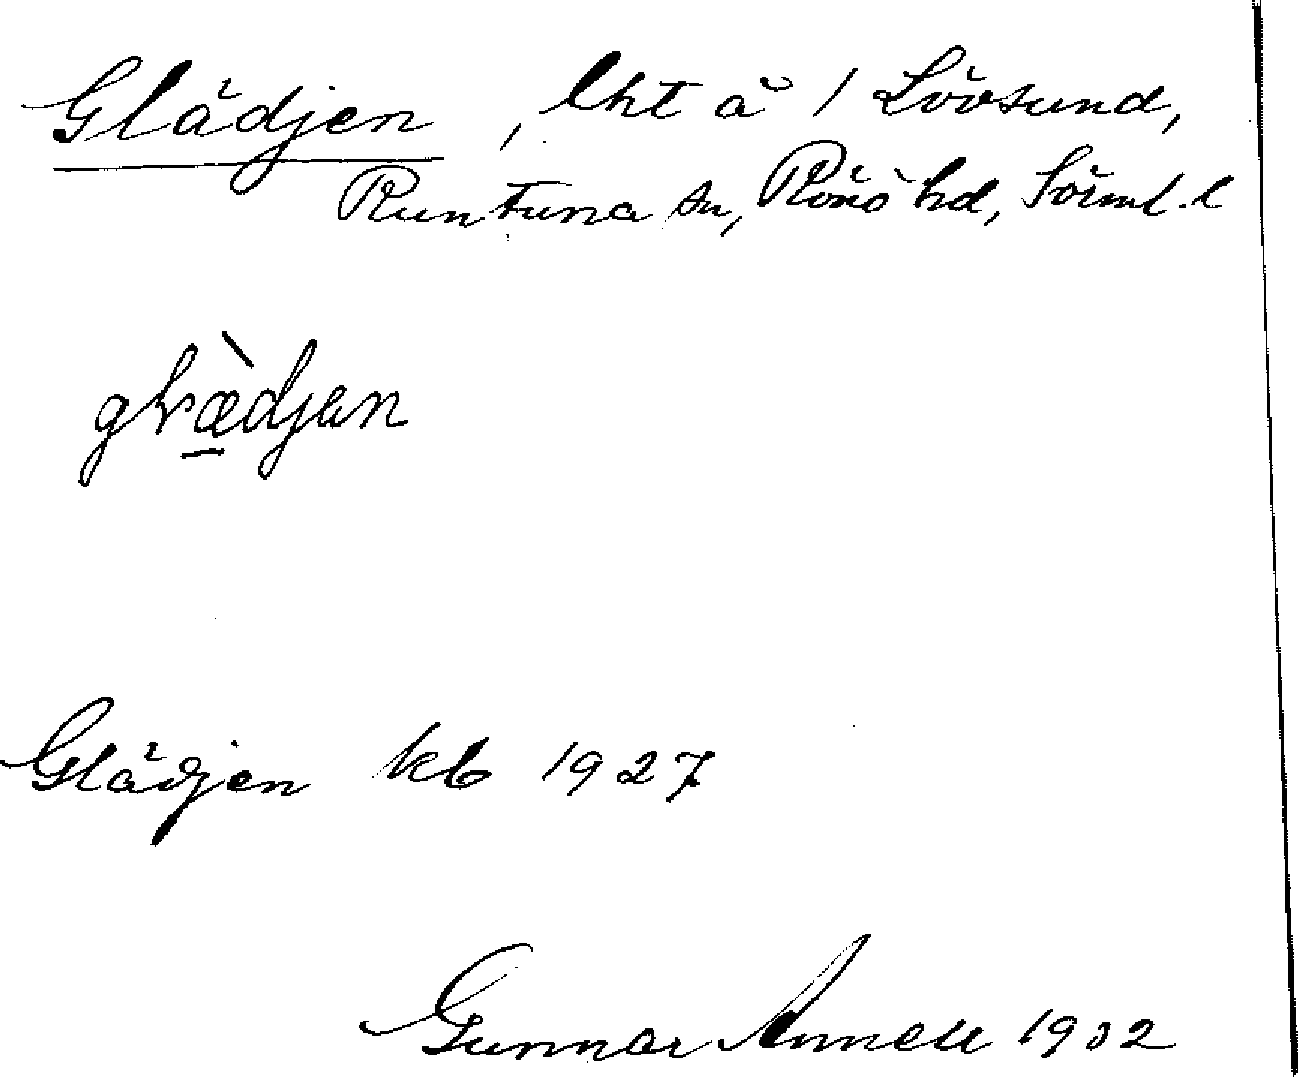 Glädjen, lht å 1 Lövsund,
Runtuna sn, Rönö hd, Sörml. l
glæ̀djen
Glädjen kb 1927
Gunnar Annell 1932